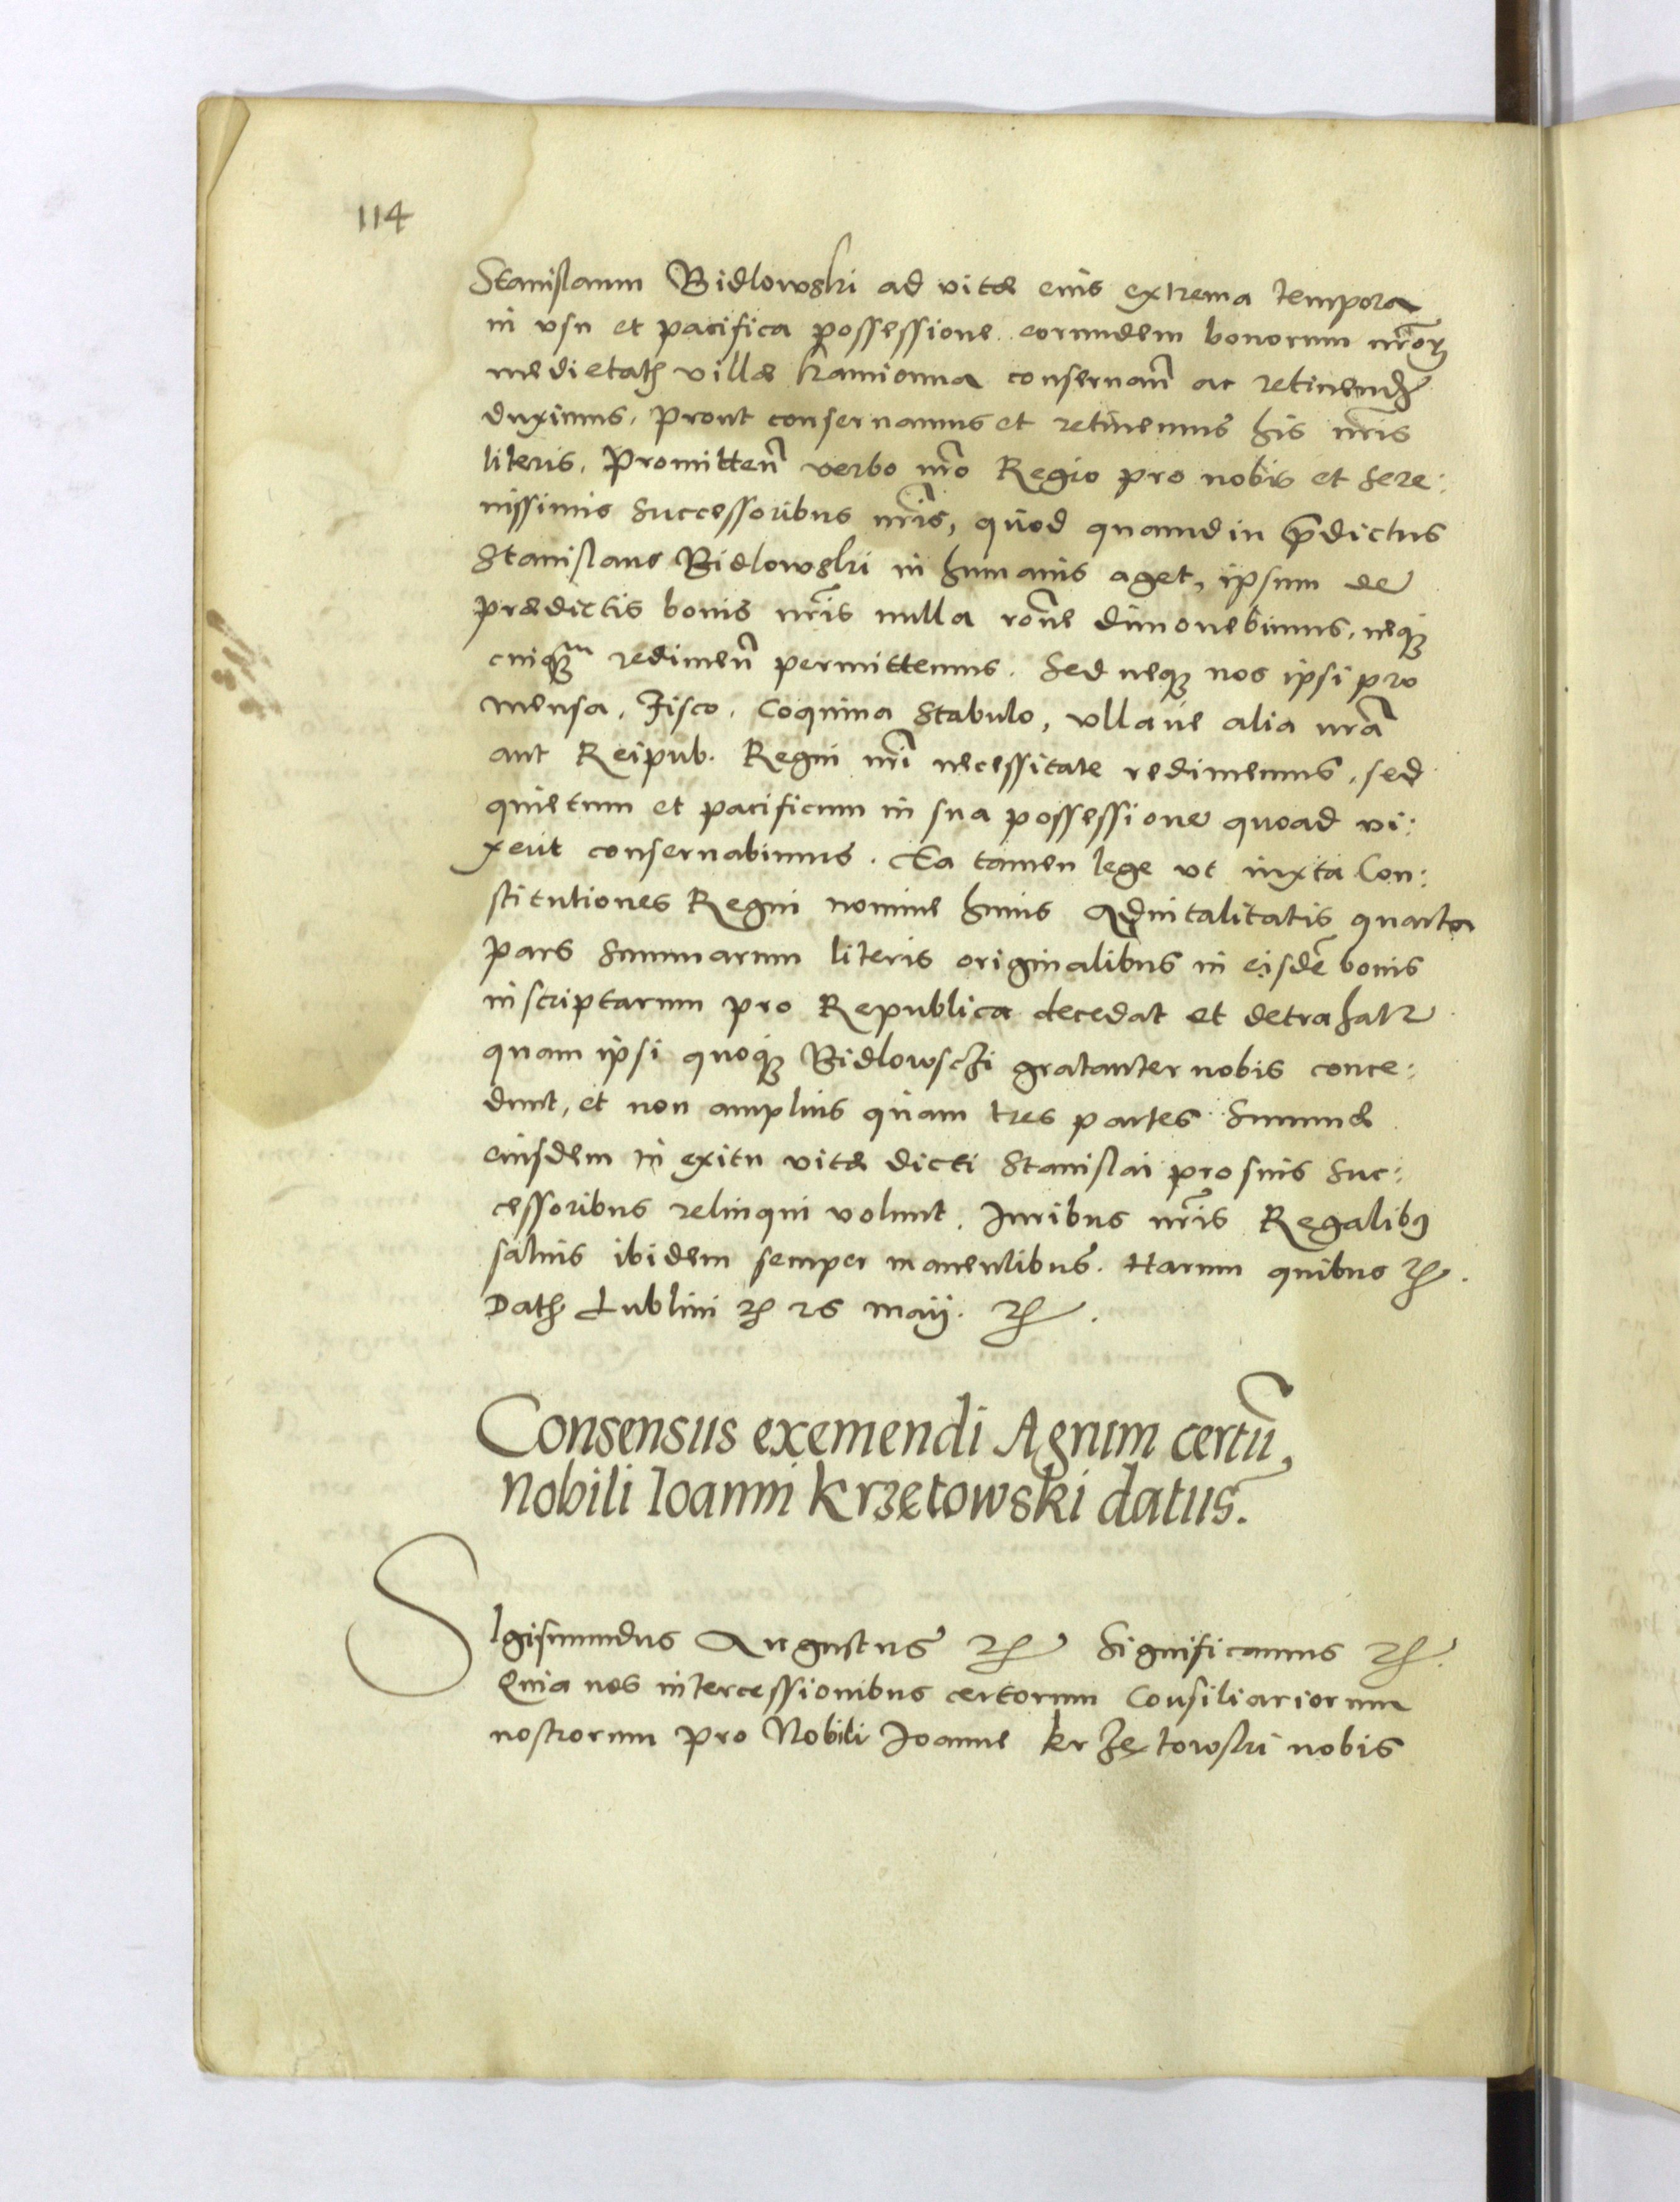 114
Stanislaum Bidlowski ad vitæ eius extrema tempora
in vsu et pacifica possessione eorundem bonorum nr̃oꝝ
medietatꝭ villæ Kamionna conseruañ ac retinendꝭ
duximus, Prout conseruamus et retinemus his nr̃is
literis. Promitteñ verbo nr̃o Regio pro nobis et sere:
nissimis Successoribus nr̃is, quod quamdiu p̃dictus
Stanislaus Bidlowski in humanis aget, ipsum de
prædictis bonis nr̃is nulla rõne dimouebimus, neqꝫ
cuiqꝫm redimeñ permittemus. Sed neqꝫ nos ipsi pro
mensa, Fisco, Coquina Stabulo, vllaue alia nrã
aut Reipub. Regni nr̃i necessitate redimemus, sed
quietum et pacificum in sua possessione quoad vi:
xerit conseruabimus. Ea tamen lege vt iuxta Con:
stitutiones Regni nomine huius Aduitalitatis quarta
pars Summarum literis originalibus in eisdẽ bonis
inscriptarum pro Republica decedat et detrahatr
quam ipsi quoqꝫ Bidlowsczi gratanter nobis conce:
dunt, et non amplius quam tres partes Summæ
eiusdem in exitu vitæ dicti Stanislai pro suis Suc:
cessoribus relinqui volunt. Iuribus nr̃is Regalibꝰ
saluis ibidem semper manentibus. Harum quibus ꝛc.
Datꝭ Lublini ꝛc 26 maij. ꝛc.
Consensus exemendi Agrum certũ,
Nobili Ioanni Krzętowski datus.
SIgismundus Augustus ꝛc Significamus ꝛc.
Quia nos intercessionibus certorum Consiliariorum
nostrorum pro Nobili Joanne Krzętowski nobis